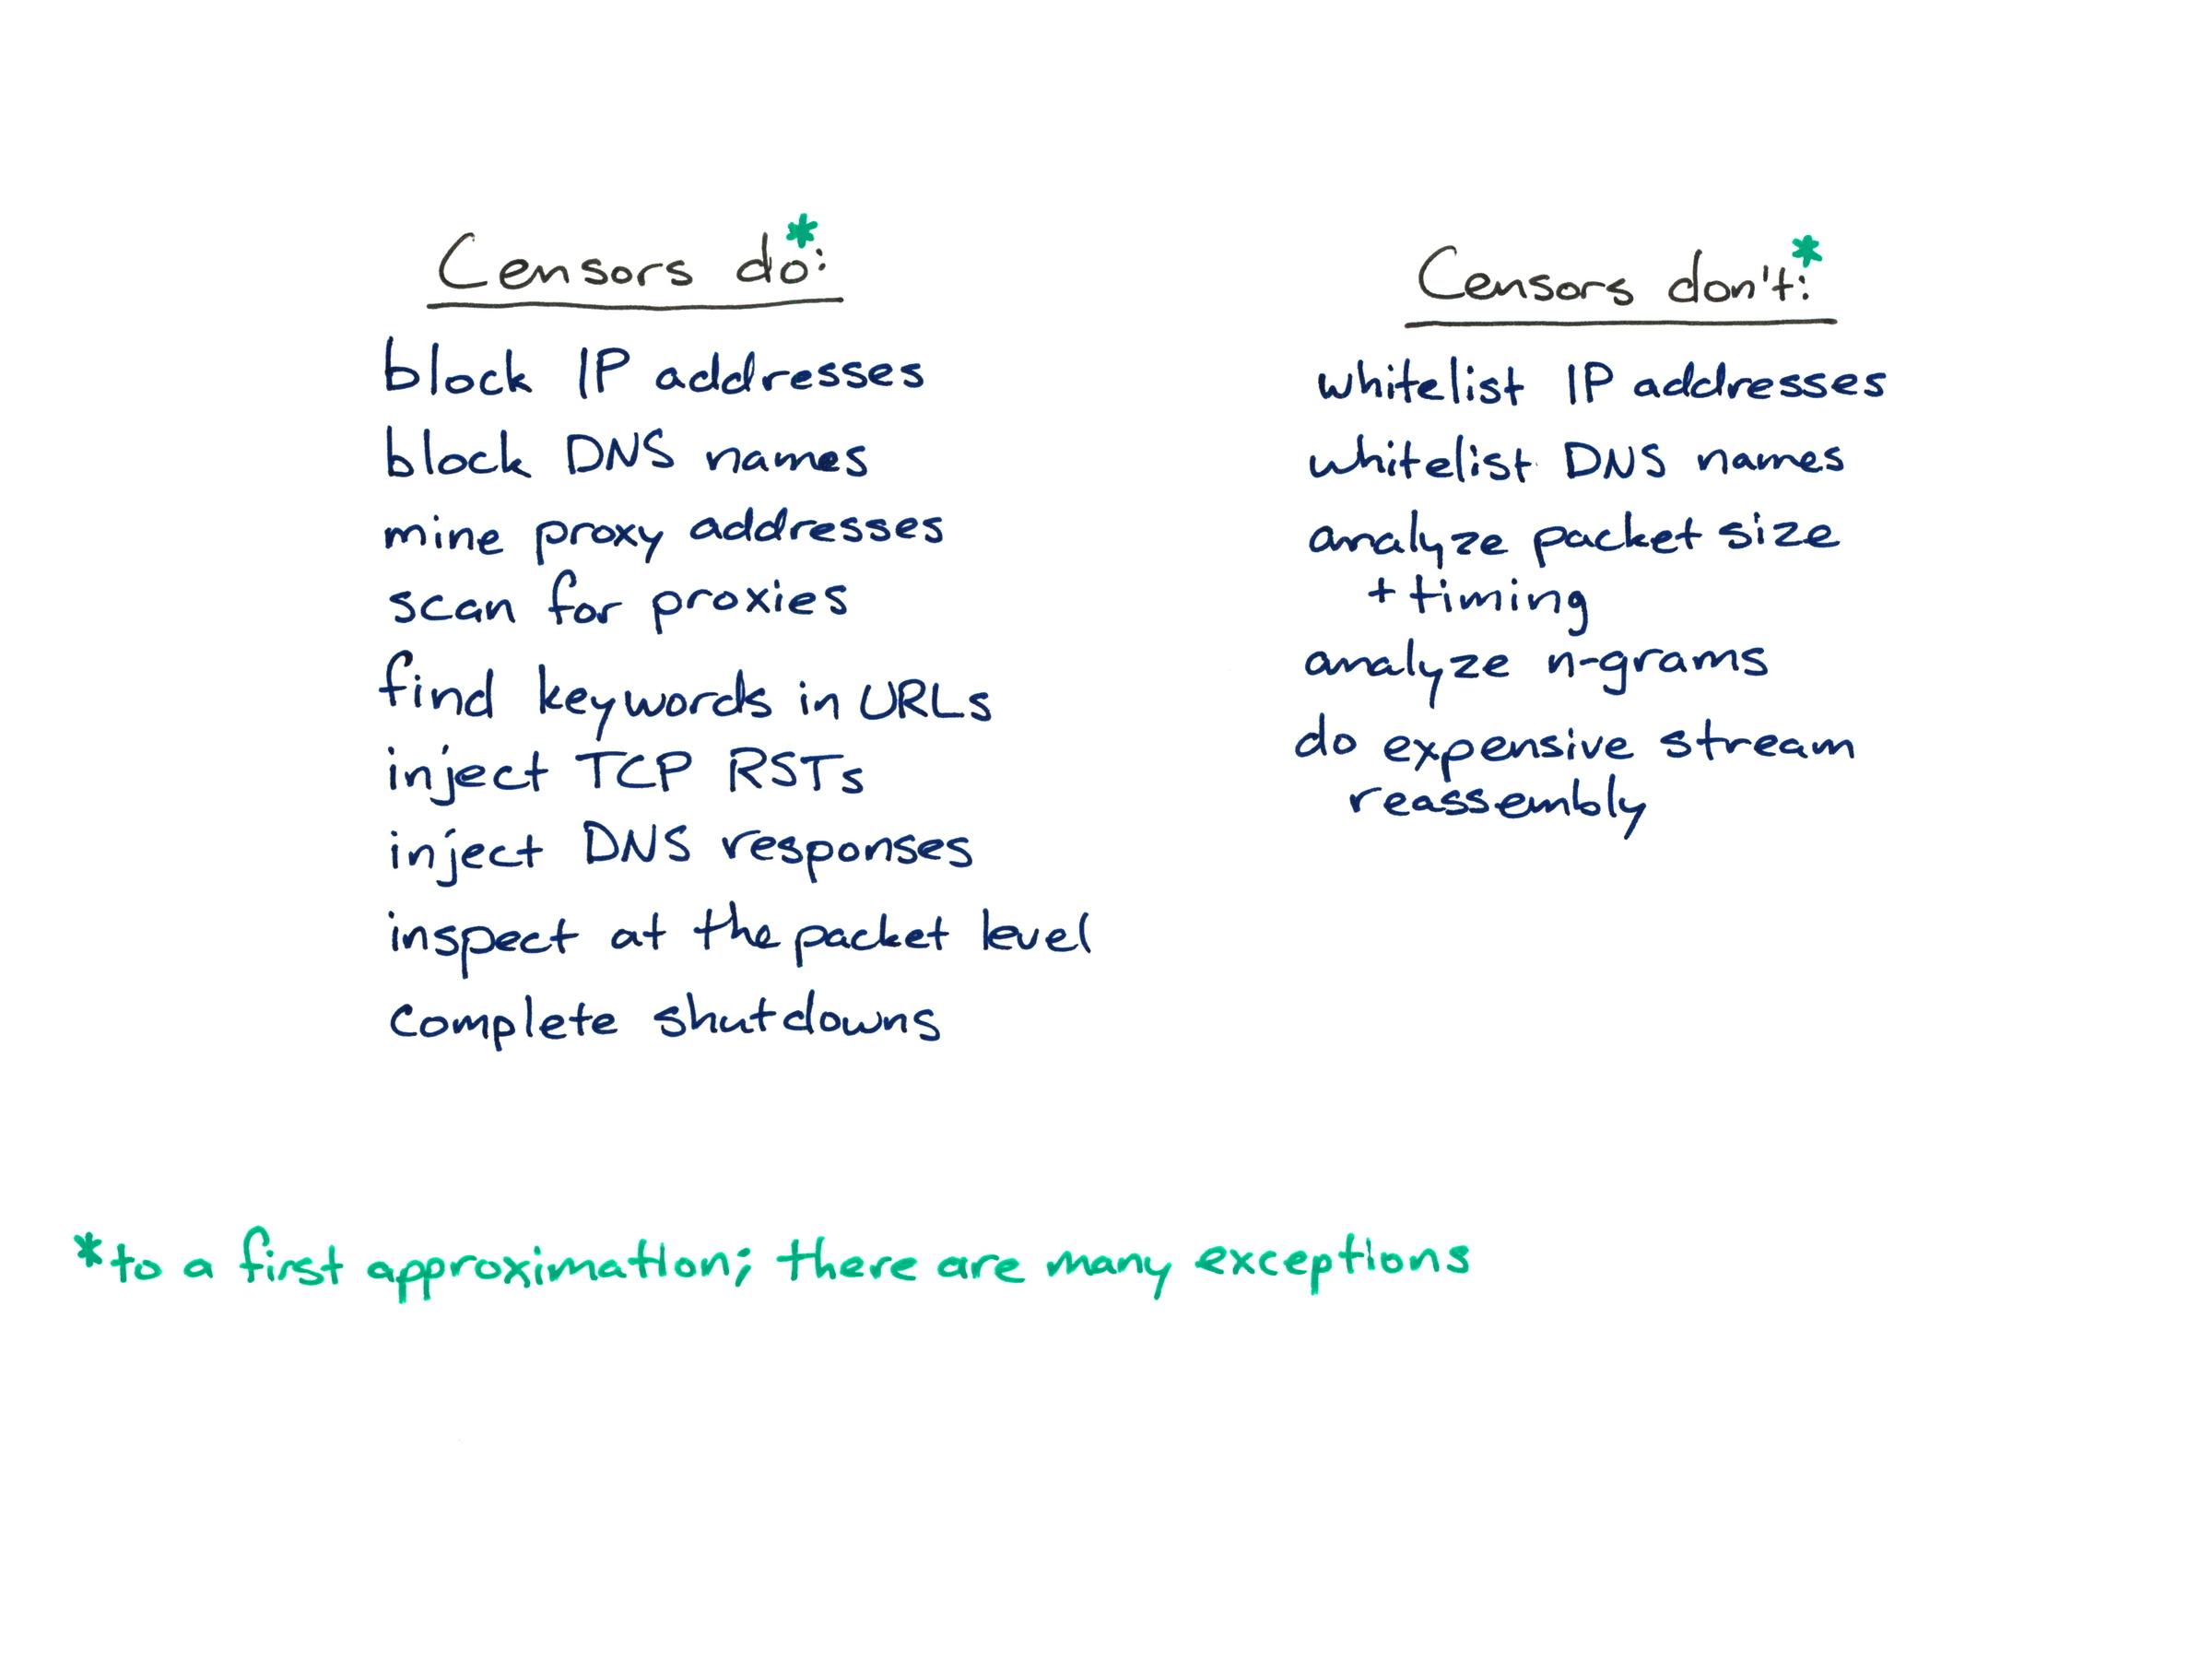 Censors do*:
block IP addresses
block DNS names
mine proxy addresses
scan for proxies
find keywords in URLs
inject TCP RSTs
inject DNS responses
inspect at the packet level
complete shutdowns
Censors don't*:
whitelist IP addresses
whitelist DNS names
analyze packet size
+ timing
analyze n-grams
do expensive stream
reassembly
*to a first approximation; there are many exceptions